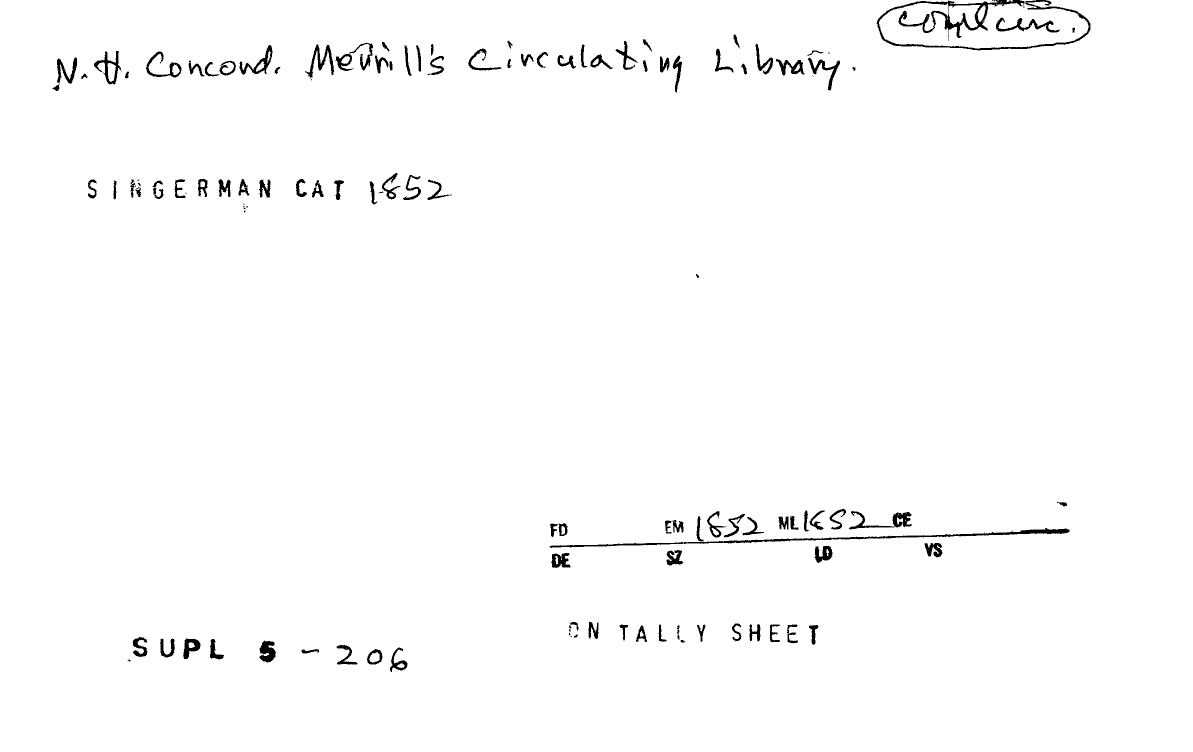 N.H. Concord. Merrill's Circulating Library.
SINGERMAN CAT 1852
FD EM 1852 ML 1852 CE
DE SZ LD VS
ON TALLY SHEET
SUPL 5 - 206